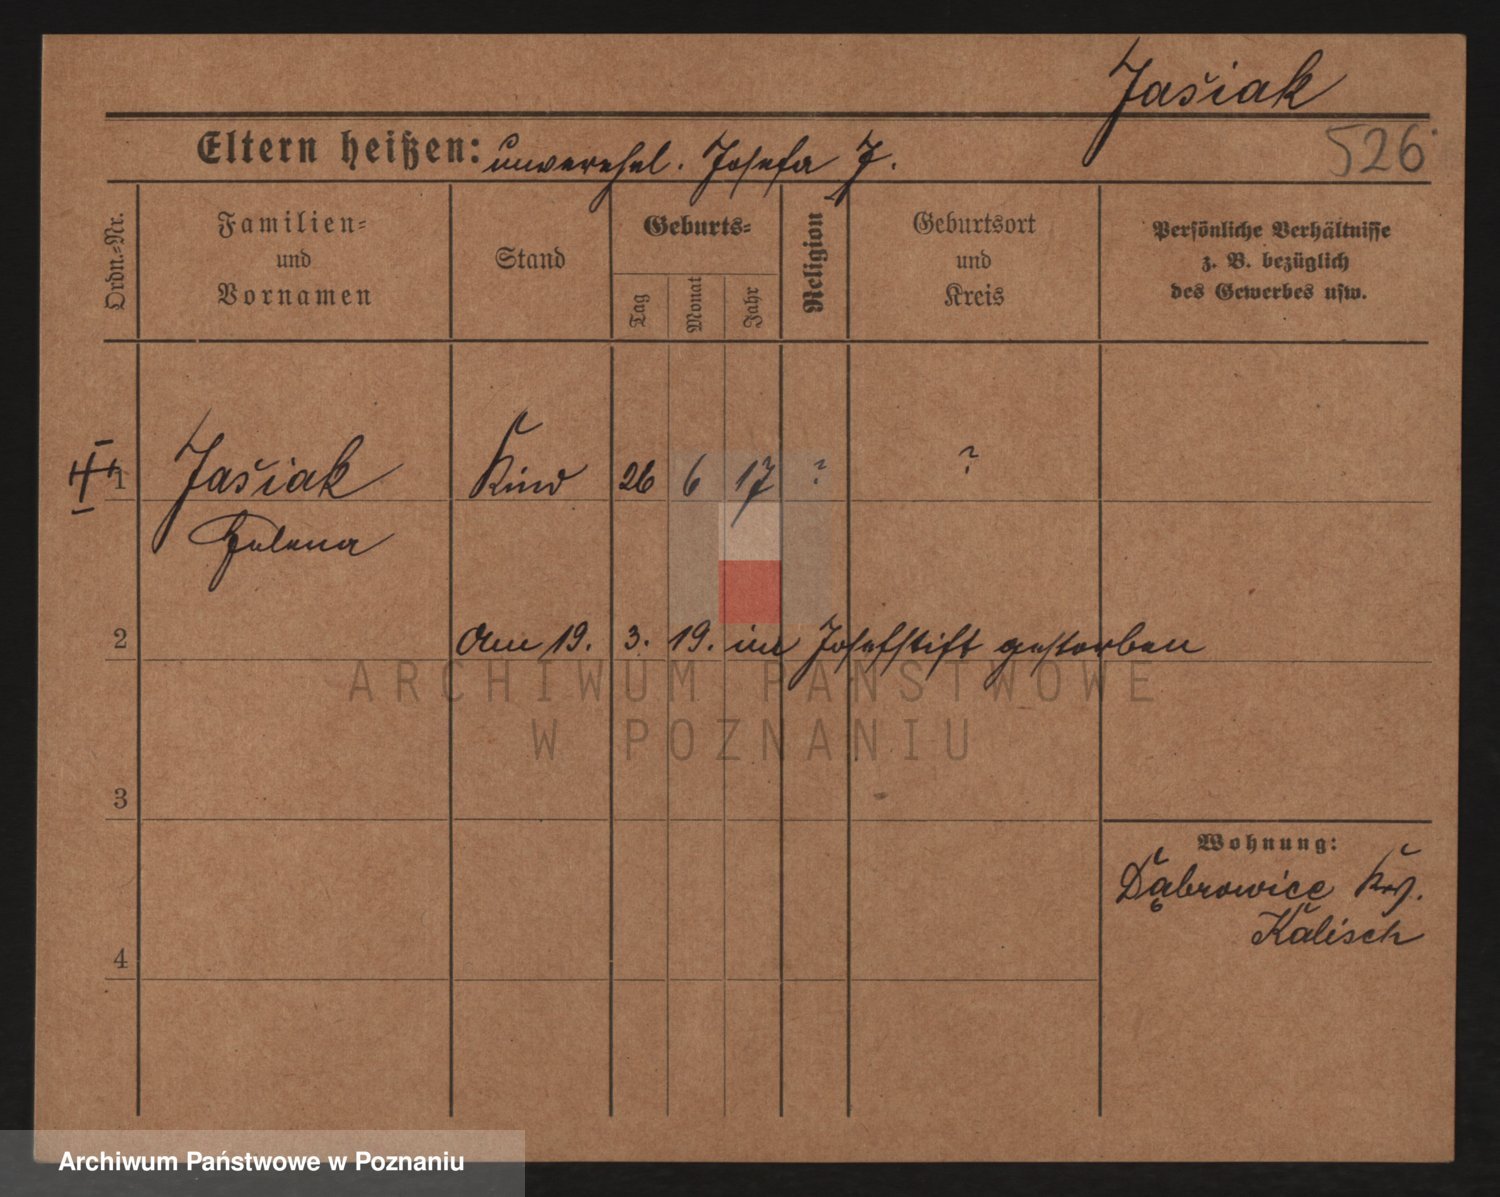 Jaśiak
526
Eltern heißen: unverehel. Josefa J.
Ordn.-Nr.
Familien-
und
Vornamen
Stand
Geburts-
Tag
Monat
Jahr
Religion
Geburtsort
und
Kreis
Persönliche Verhältnisse
z. B. bezüglich
des Gewerbes usw.
1 Jaśiak Kind 26 6 17 ? ?
Helena
2 Am 19. 3. 19. im Josefstift gestorben
ARCHIWUM PAŃSTWOWE
W POZNANIU
3
Wohnung:
Dąbrowice Krs.
Kalisch
4
Archiwum Państwowe w Poznaniu